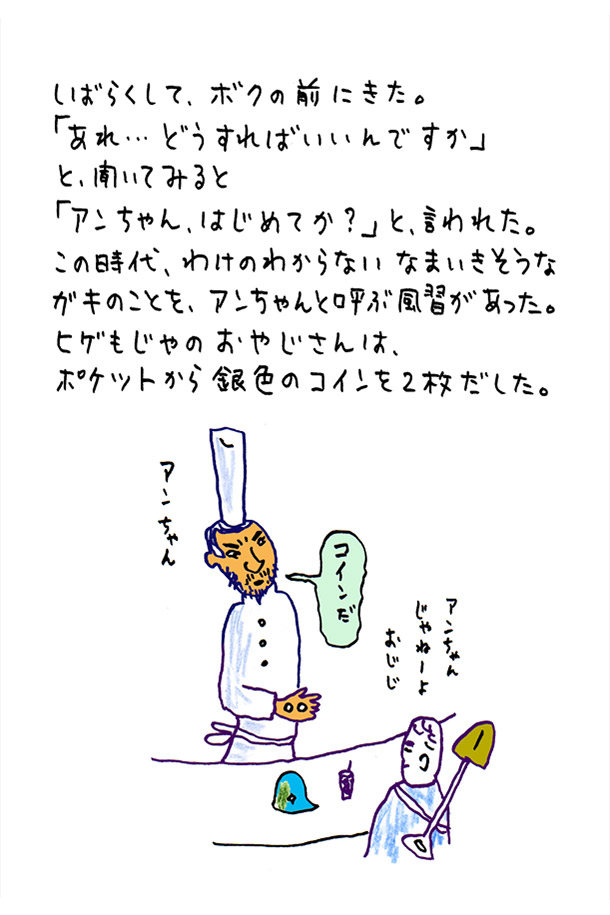 しばらくして、ボクの前にきた。
「あれ…どうすればいいんですか」
と、聞いてみると
「アンちゃん、はじめてか？」と、言われた。
この時代、わけのわからない なまいきそうな
ガキのことを、アンちゃんと呼ぶ風習があった。
ヒゲもじゃの おやじさんは、
ポケットから 銀色のコインを2枚だした。
アンちゃん
コインだ
アンちゃん
じゃねーよ
おじじ